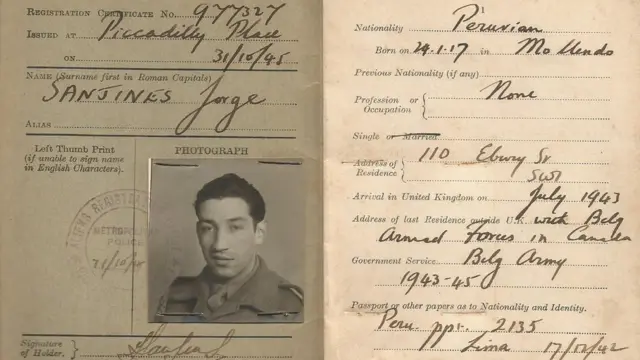 REGISTRATION CERTIFICATE No. 977327
ISSUED AT Piccadilly Place
ON 31/10/45
NAME (Surname first in Roman Capitals)
SANJINES Jorge
ALIAS
Left Thumb Print
(if unable to sign name
in English Characters).
PHOTOGRAPH
ALIENS REGISTRATION
METROPOLITAN
POLICE
31/10/45
Signature
of Holder.
Nationality Peruvian
Born on 24.1.17 in Mollendo
Previous Nationality (if any)
Profession or
Occupation
None
Single or Married
Address of
Residence
110 Ebury St
SW1
Arrival in United Kingdom on July 1943
Address of last Residence outside U.K. with Belg
Armed Forces in Canada
Government Service Belg Army
1943-45
Passport or other papers as to Nationality and Identity.
Peru. ppt. 2135
Lima 17/12/42